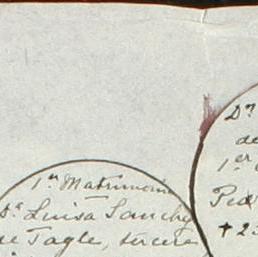 1.er Matrimonio
Dª Luisa Sanchez
de Tagle, tercera
Dn
de
1er
Ped
+ 23